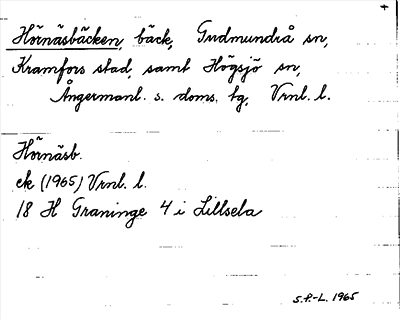 Hörnäsbäcken, bäck, Gudmundrå sn,
Kramfors stad, samt Högsjö sn,
Ångermanl. s. doms. tg, Vrnl. l.
Hörnäsb.
ek (1965) Vrnl. l.
18 H Graninge 4 i Lillsela
S.P.-L. 1965